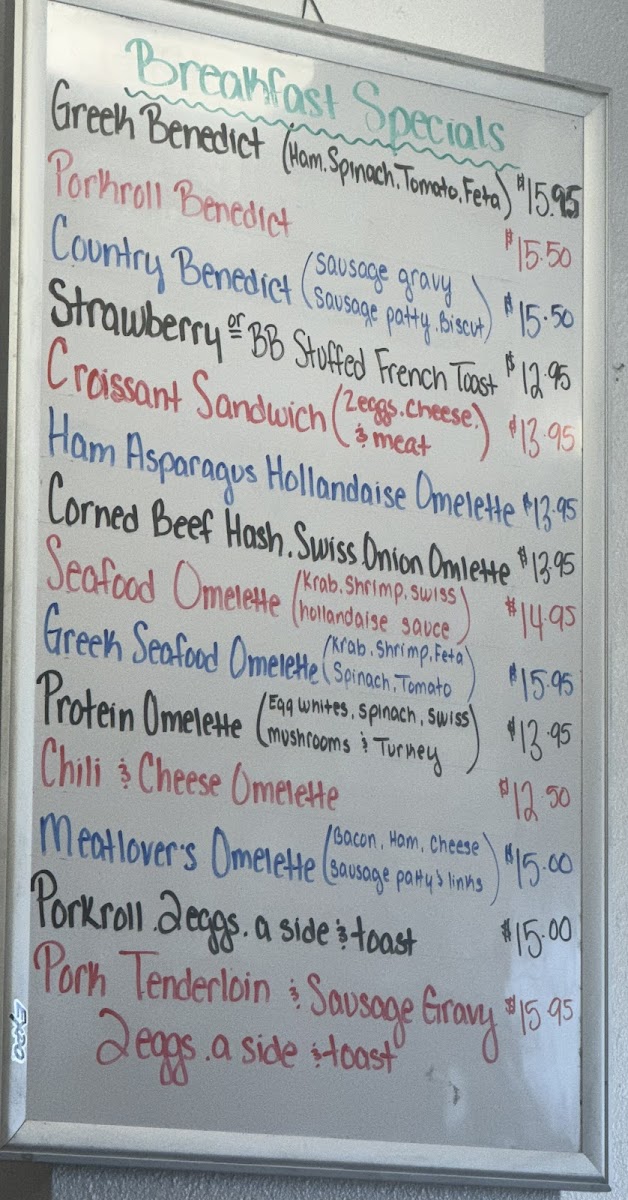 Breakfast Specials
Greek Benedict (Ham.Spinach.Tomato.Feta) $15.95
Porkroll Benedict $15.50
Country Benedict (sausage gravy
Sausage patty.Biscut) $15.50
Strawberry or BB Stuffed French Toast $12.95
Croissant Sandwich (2eggs.cheese.
& meat) $13.95
Ham Asparagus Hollandaise Omelette $13.95
Corned Beef Hash.Swiss Onion Omlette $13.95
Seafood Omelette (Krab.Shrimp.swiss
hollandaise sauce) $14.95
Greek Seafood Omelette (Krab.Shrimp.Feta
Spinach,Tomato) $15.95
Protein Omelette (Egg whites, spinach, swiss
mushrooms & Turkey) $13.95
Chili & Cheese Omelette $12.50
Meatlover's Omelette (Bacon, Ham, Cheese
Sausage patty & links) $15.00
Porkroll.2eggs.a side & toast $15.00
Pork Tenderloin & Sausage Gravy $15.95
2eggs.a side & toast
EXPO